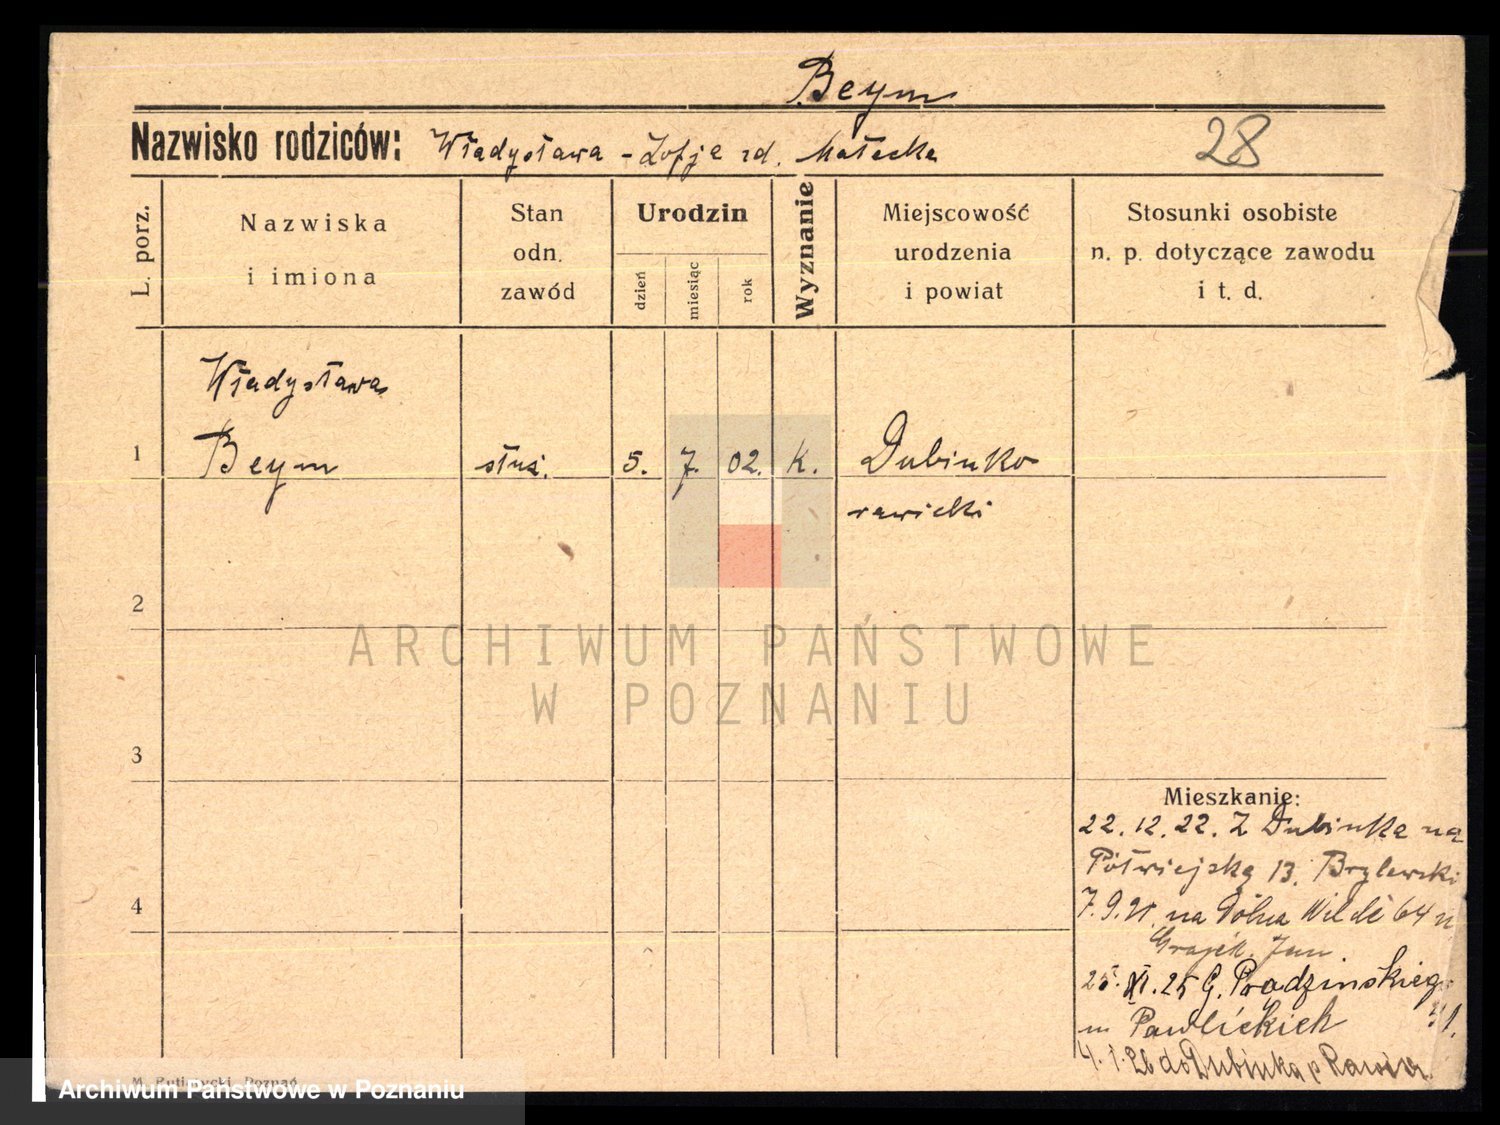 Beym
Nazwisko rodziców: Władysława - Zofja rd. Małecka
28
L. porz.
Nazwiska
i imiona
Stan
odn.
zawód
Urodzin
dzień
miesiąc
rok
Wyznanie
Miejscowość
urodzenia
i powiat
Stosunki osobiste
n. p. dotyczące zawodu
i t. d.
Władysława
1 Beym służ. 5. 7. 02. k. Dubinko
rawicki
2
ARCHIWUM PAŃSTWOWE
W POZNANIU
3
Mieszkanie:
22. 12. 22. Z Dubinka na
Półwiejską 13. Brylewski
4
7. 9. na Dolna Wilde 64
Grajek Jan.
25. XI. 25 G. Prądzinskieg
m Pawlickich
4. 1. 26 do Dubinka p Rawicz
M. Putiatycki, Poznań
Archiwum Państwowe w Poznaniu